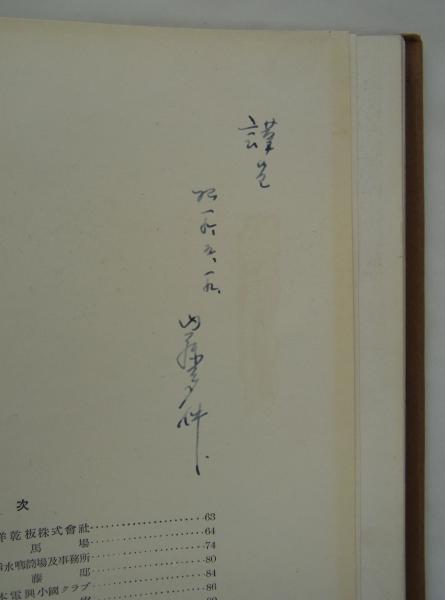 謹呈
昭一六、五、一九、
内藤多仲
次
洋乾板株式會社 63
馬場 64
水喞筒場及事務所 74
藤邸 80
本電興小國クラブ 84
86